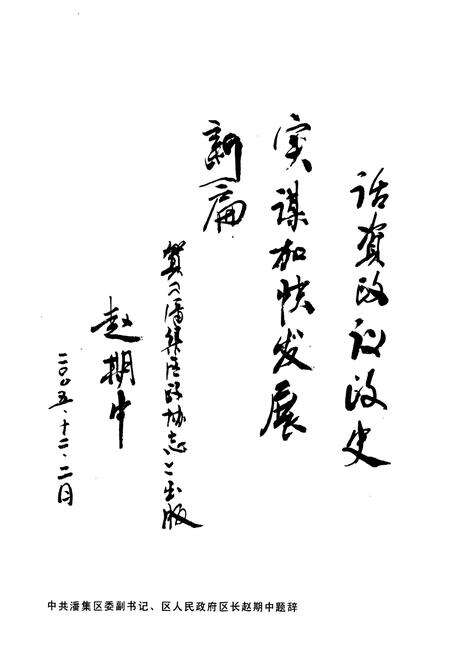 话资政议政史
实谋加快发展
新篇
贺《潘集区政协志》出版
赵期中
二〇〇五.十二.二日
中共潘集区委副书记、区人民政府区长赵期中题辞